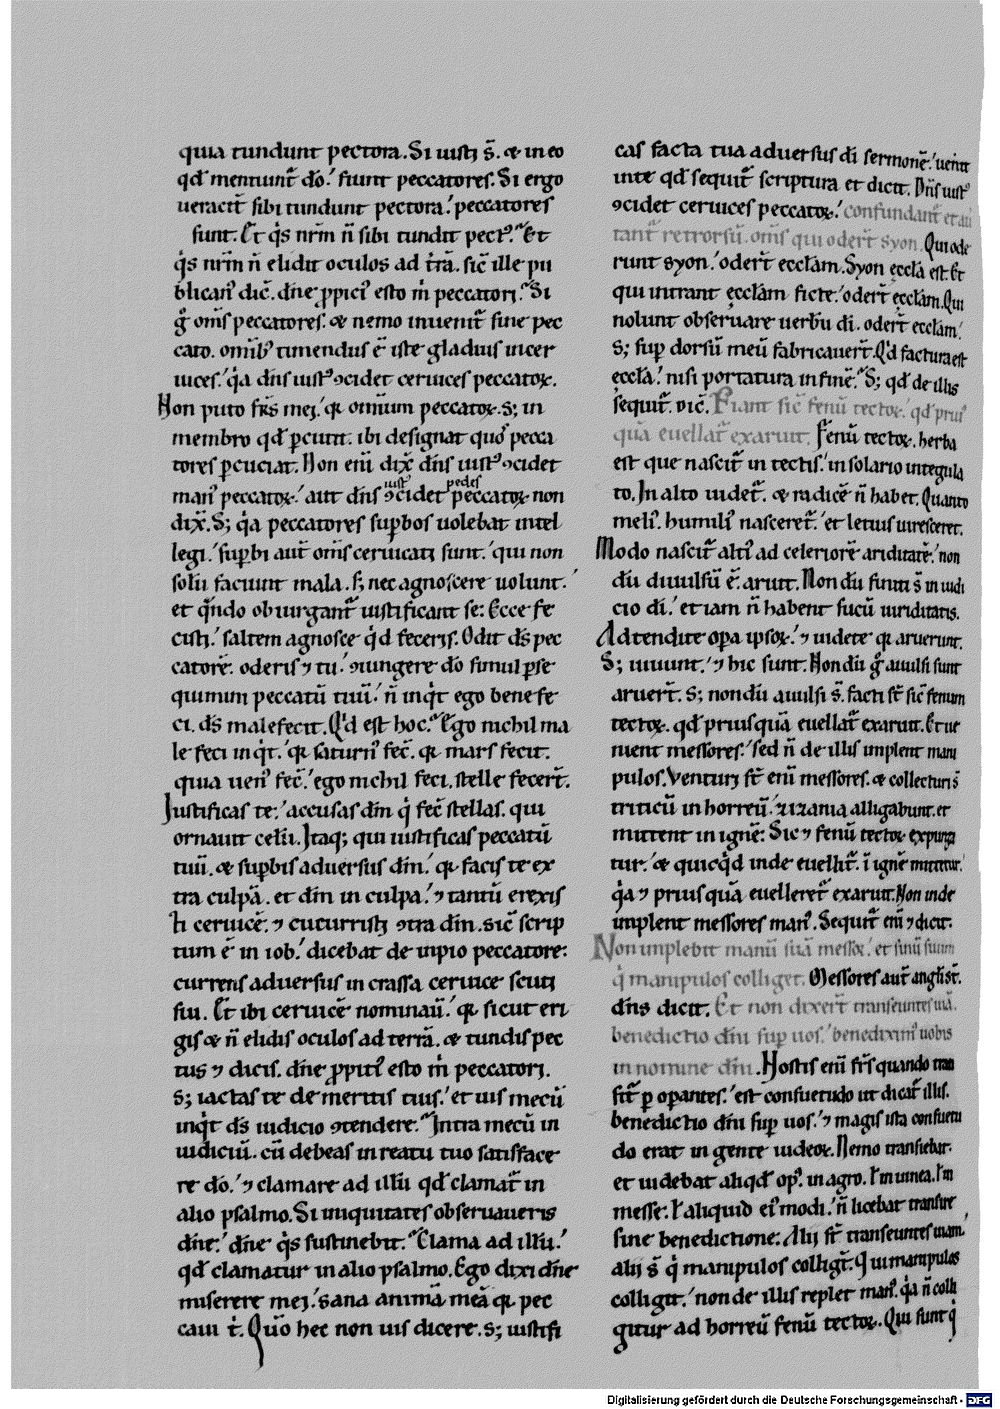 quia tundunt pectora. Si iusti s̄. & in eo
qd̄ mentiunt̄ dō.' fiunt peccatores. Si ergo
ueracit̄ sibi tundunt pectora.' peccatores
sunt. Et q̇s nr̄m n̄ sibi tundit pect9. Et
q̇s nr̄m n̄ elidit oculos ad t̄rā. sic̄ ille pu
blican9 dic̄. dn̄e ꝓpici9 esto m̄ peccatori. Si
g̊ om̄s peccatores. & nemo inuenit̄ sine pec
cato. omīb9 timendus ē iste gladius incer
uices.' q̇a dn̄s iust9 ꝯcidet ceruices peccatoꝝ.
Non puto fr̄s mei.' qꝛ omnium peccatoꝝ. S; in
membro qd̄ ꝑcutit. ibi designat quo9 pecca
tores ꝑcuciat. Non eni dix̄ dn̄s iust9 ꝯcidet
man9 peccatoꝝ.' aut dn̄s iust9 ꝯcidet pedes peccatoꝝ non
dix̄. S; q̇a peccatores suꝑbos uolebat intel
legi.' suꝑbi aut̄ om̄s ceruicati sunt.' qui non
solū faciunt mala. s; nec agnoscere uolunt.'
et q̇ndo obiurgant̄ iustificant se: Ecce fe
cisti.' saltem agnosce q̇d feceris. Odit ds̄ pec
catorē. oderis ⁊ tu.' ꝯiungere dō simul ꝑse
quimini peccatū tuū.' n̄ inq̇t ego bene fe
ci. ds̄ malefecit. Q'd est hoc. Ego nichil ma
le feci inq̇t.' qꝛ saturn9 fec̄. qꝛ mars fecit.
quia uen9 fec̄.' ego nichil feci. stelle fecer̄t.
Iustificas te.' accusas dm̄ q̇ fec̄ stellas. qui
ornauit celū. Itaq; qui iustificas peccatū
tuū. & suꝑbis aduersus dm̄.' qꝛ facis te ex
tra culpā. et dm̄ in culpa.' ⁊ tantū erexis
ti ceruicē. ⁊ cucurristi ꝯtra dm̄. sic̄ scrip
tum ē in iob.' dicebat de inpio peccatore:
currens aduersus in crassa ceruice scuti
sui. Et ibi ceruicē nominaū.' qꝛ sicut eri
gis & n̄ elidis oculos ad terrā. & tundis pec
tus ⁊ dicis. dn̄e ꝓpiti9 esto m̄ peccatori.
S; iactas te de meritis tuis.' et uis mecū
inq̇t ds̄ iudicio ꝯtendere. Intra mecū in
iudiciū. cū debeas in reatu tuo satisface
re dō.' ⁊ clamare ad illū qd̄ clamat̄ in
alio psalmo. Si iniquitates obseruaueris
dn̄e.' dn̄e q̇s sustinebit. Clama ad illū.'
qd̄ clamatur in alio psalmo. Ego dixi dn̄e
miserere mei.' sana animā meā qꝛ pec
caui t̄. Quo hec non uis dicere. S; iustifi
cas facta tua aduersus di sermonē.' uenit
inte qd̄ sequit̄ scriptura et dicit. Dn̄s iust9
ꝯcidet ceruices peccatoꝝ.' confundant̄ et aū
tant̄ retrorsū. oms̄ qui oder̄t syon. Qui ode
runt syon.' oder̄t eccl̄am. Syon eccl̄a est. Et
qui intrant ęccl̄am ficte.' oder̄t ęccl̄am. Qui
nolunt obseruare uerbū di. oder̄t eccl̄am.'
S; suꝑ dorsū meū fabricauer̄t. Q'd factura est
ęccl̄a.' nisi portatura in finē. S; qd̄ de illis
sequit̄. dic̄. Fiant sic̄ fenū tectoꝝ.' qd̄ prius
quā euellat̄ exaruit. Fenū tectoꝝ. herba
est que nascit̄ in tectis.' in solario integula
to. In alto uidet̄. & radicē n̄ habet. Quanto
meli9. humili9 nasceret̄.' et letius uiresceret.
Modo nascit̄ alti9 ad celeriorē ariditatē.' non
dū diuulsū ē. aruit. Non dū finiti s̄ in iudi
cio di.' et iam n̄ habent sucū uiriditatis.
Adtendite oꝑa ipsoꝝ.' ⁊ uidete qꝛ aruerunt.
S; uiuunt.' ⁊ hic sunt. Non dū g̊ auulsi sunt
aruer̄t. S; nondū auulsi s̄. facti st̄ sic̄ fenum
tectoꝝ. qd̄ priusquā euellat̄ exaruit. Et ue
nient messores.' sed n̄ de illis implent mani
pulos. Venturi st̄ enī messores. & collecturi s̄
triticū in horreū.' zizania alligabunt. et
mittent in ignē: Sic ⁊ fenū tectoꝝ expurga
tur.' & quicq̇d inde euellit̄. ī ignē mittitur.'
q̇a ⁊ priusquā euelleret̄ exaruit. Non inde
implent messores man9. Sequit̄ enī ⁊ dicit.
Non implebit manū suā messor.' et sinū suum
q̇ manipulos colliget. Messores aut̄ angl̄i st̄.
dn̄s dicit. Et non dixer̄t transeuntes uiā.
benedictio dn̄i suꝑ uos.' benedixim9 uobis
in nomine dn̄i. Hostis enī fr̄s quando tran
sit̄ ꝑ oꝑantes.' est consuetudo ut dicat̄ illis.
benedictio dn̄i suꝑ uos.' ⁊ magis ista consuetu
do erat in gente iudeoꝝ. Nemo transiebat.
et uidebat aliqd̄ op9. in agro. ł in uinea. ł in
messe. ł aliquid ei9modi.' n̄ licebat transire
sine benedictione: Alij st̄ transeuntes uiam.'
alij s̄ q̇ manipulos colligt̄. Qui manipulos
colligt̄.' non de illis replet man9. q̇a n̄ colli
gitur ad horreū fenū tectoꝝ. Qui sunt q̇
Digitalisierung gefördert durch die Deutsche Forschungsgemeinschaft - DFG